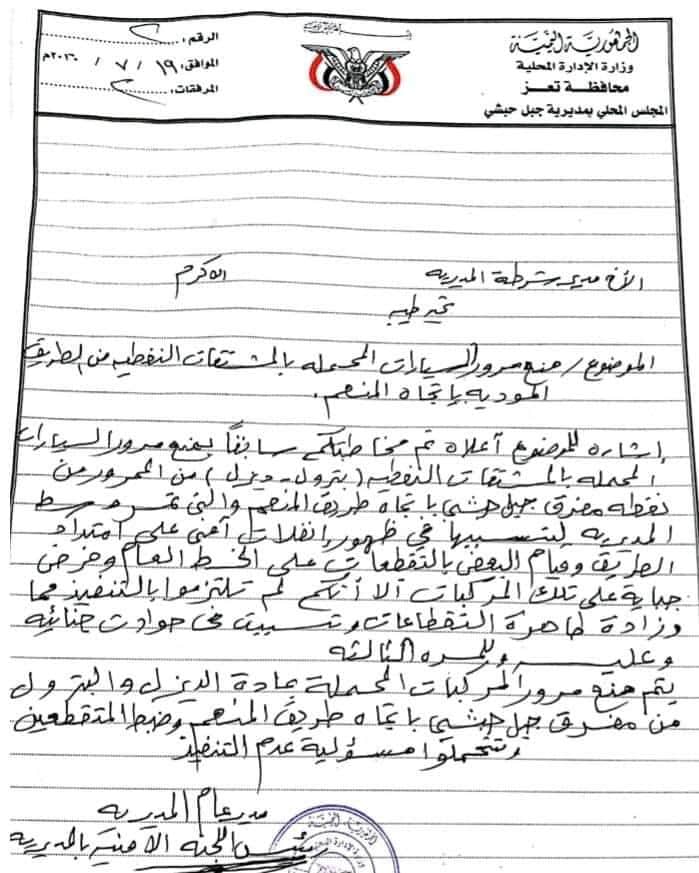 الجمهورية اليمنية
وزارة الإدارة المحلية
محافظة تعز
المجلس المحلي بمديرية جبل حبشي
الرقم:
الموافق: ١٩ / ٧ / ٢٠١٦م
المرفقات:
الأخ مدير شرطة المديريه الاكرم
تحيه طيبه
الموضوع / منع مرور السيارات المحمله بالمشتقات النفطيه من الطريق
المؤديه بإتجاه المنعم.
إشاره للموضوع أعلاه تم مخاطبتكم سابقاً بمنع مرور السيارات
المحمله بالمشتقات النفطيه (بترول - ديزل) من المرور من
نقطه مفرق جبل حبشي باتجاه طريق المنعم والتي تمر وسط
المديريه لتسببها في ظهور إنفلات أمني على امتداد
الطريق وقيام البعض بالتقطعات على الخط العام وفرض
جباية على تلك المركبات ألا أنكم لم تلتزموا بالتنفيذ مما
وزادة ظاهرة التقطاعات وتسببت في حوادث جنائيه
وعليه وللمره الثالثه
يتم منع مرور المركبات المحملة بمادة الديزل والبترول
من مفرق جبل حبشي باتجاه طريق المنعم وضبط المتقطعين
وتتحملوا مسؤلية عدم التنفيذ
مدير عام المديريه
رئيس اللجنه الأمنية بالمديريه